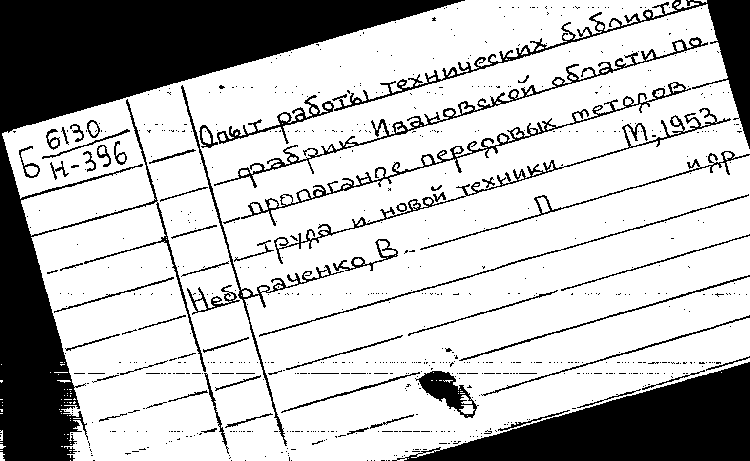 Б 6130
Н-396
Опыт работы технических библиотек
фабрик Ивановской области по
пропаганде передовых методов
труда и новой техники. М., 1953
П и др
Небораченко, В.